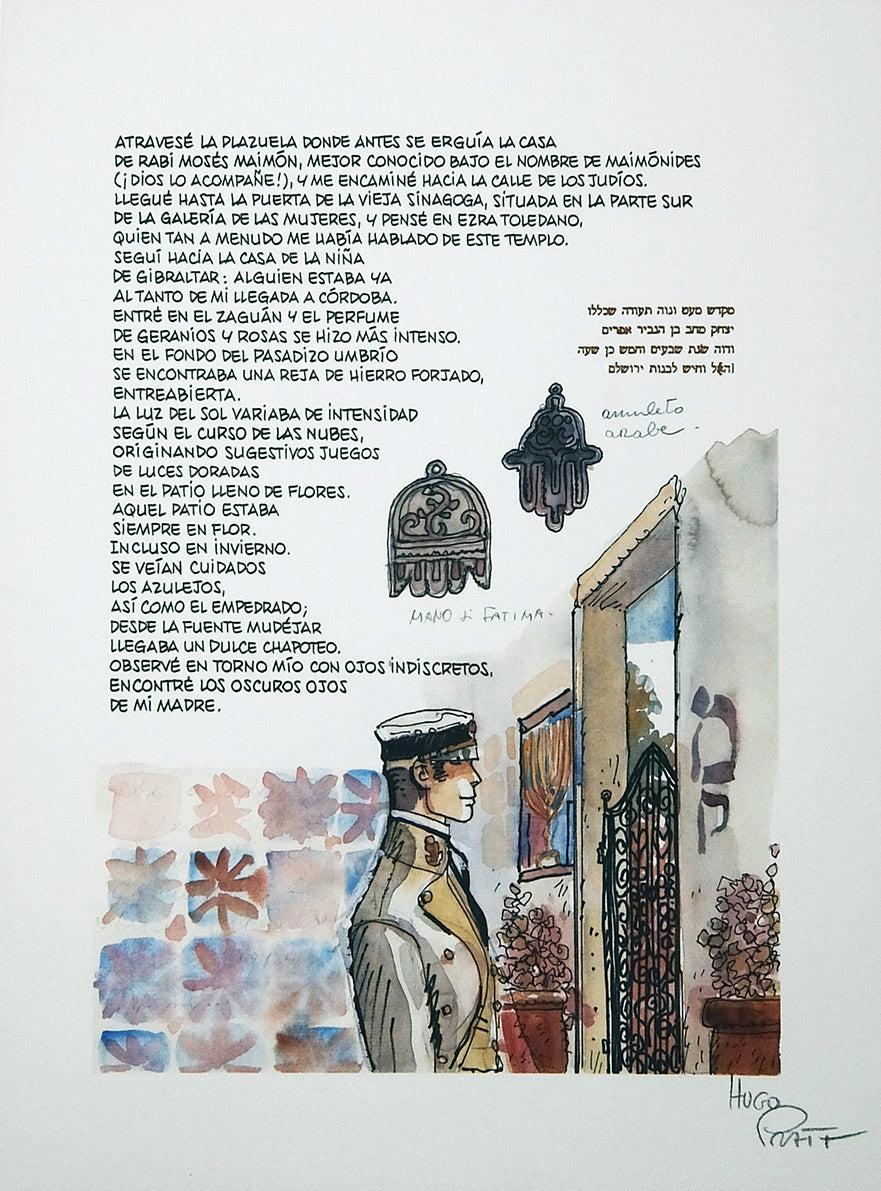 ATRAVESÉ LA PLAZUELA DONDE ANTES SE ERGUÍA LA CASA
DE RABI MOSÉS MAIMÓN, MEJOR CONOCIDO BAJO EL NOMBRE DE MAIMÓNIDES
(¡DIOS LO ACOMPAÑE!), Y ME ENCAMINÉ HACIA LA CALLE DE LOS JUDÍOS.
LLEGUÉ HASTA LA PUERTA DE LA VIEJA SINAGOGA, SITUADA EN LA PARTE SUR
DE LA GALERÍA DE LAS MUJERES, Y PENSÉ EN EZRA TOLEDANO,
QUIEN TAN A MENUDO ME HABÍA HABLADO DE ESTE TEMPLO.
SEGUÍ HACIA LA CASA DE LA NIÑA
DE GIBRALTAR: ALGUIEN ESTABA YA
AL TANTO DE MI LLEGADA A CÓRDOBA.
ENTRÉ EN EL ZAGUÁN Y EL PERFUME
DE GERANIOS Y ROSAS SE HIZO MÁS INTENSO.
EN EL FONDO DEL PASADIZO UMBRÍO
SE ENCONTRABA UNA REJA DE HIERRO FORJADO,
ENTREABIERTA.
LA LUZ DEL SOL VARIABA DE INTENSIDAD
SEGÚN EL CURSO DE LAS NUBES,
ORIGINANDO SUGESTIVOS JUEGOS
DE LUCES DORADAS
EN EL PATIO LLENO DE FLORES.
AQUEL PATIO ESTABA
SIEMPRE EN FLOR.
INCLUSO EN INVIERNO.
SE VEÍAN CUIDADOS
LOS AZULEJOS,
ASÍ COMO EL EMPEDRADO;
DESDE LA FUENTE MUDÉJAR
LLEGABA UN DULCE CHAPOTEO.
OBSERVÉ EN TORNO MÍO CON OJOS INDISCRETOS,
ENCONTRÉ LOS OSCUROS OJOS
DE MI MADRE.
מקדש מעט ונוה תעודה שכללו
יצחק מחב בן הגביר אפרים
ודוה שנת שבעים וחמש כן שעה
האל וחיש לבנות ירושלם
amuleto
arabe.
MANO di FATIMA.
HUGO
PRATT